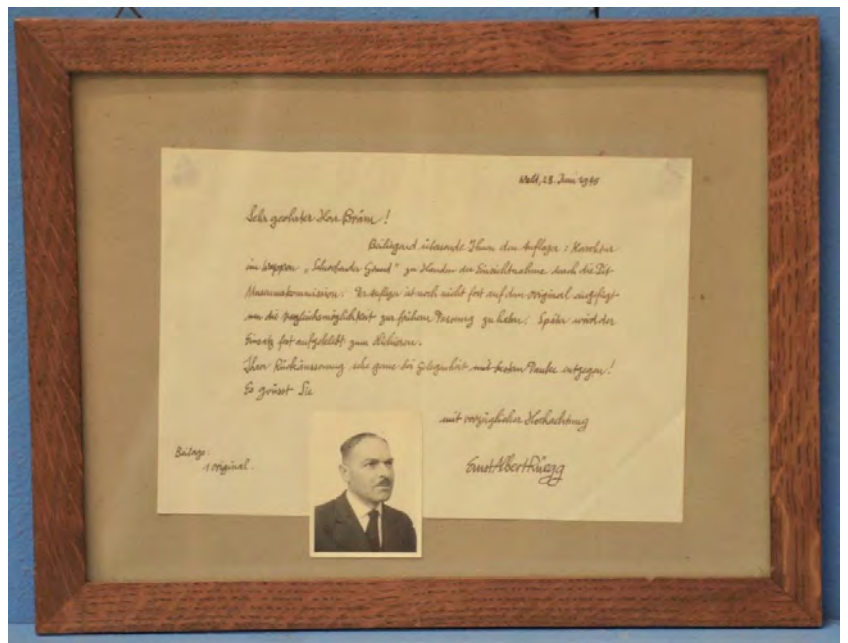 Wald, 28. Juni 1945
Sehr geehrter Herr Bräm!
Beiliegend übersende Ihnen den Aufleger: Karobtur
im Wappen „Schnebender Hund" zu Handen der Einsichtnahme durch die Tit.
Museumskommission. Der Aufleger ist noch nicht fest auf dem Original eingefügt
um die Vergleichsmöglichkeit zur frühern Fassung zu haben. Später wird der
Einsatz fest aufgeklebt zum
Ihrer Rückäusserung sehe gerne bei Gelegenheit mit bestem Danke entgegen!
Es grüsst Sie
mit vorzüglicher Hochachtung
Ernst Albert Rüegg
Beilage:
1 Original.